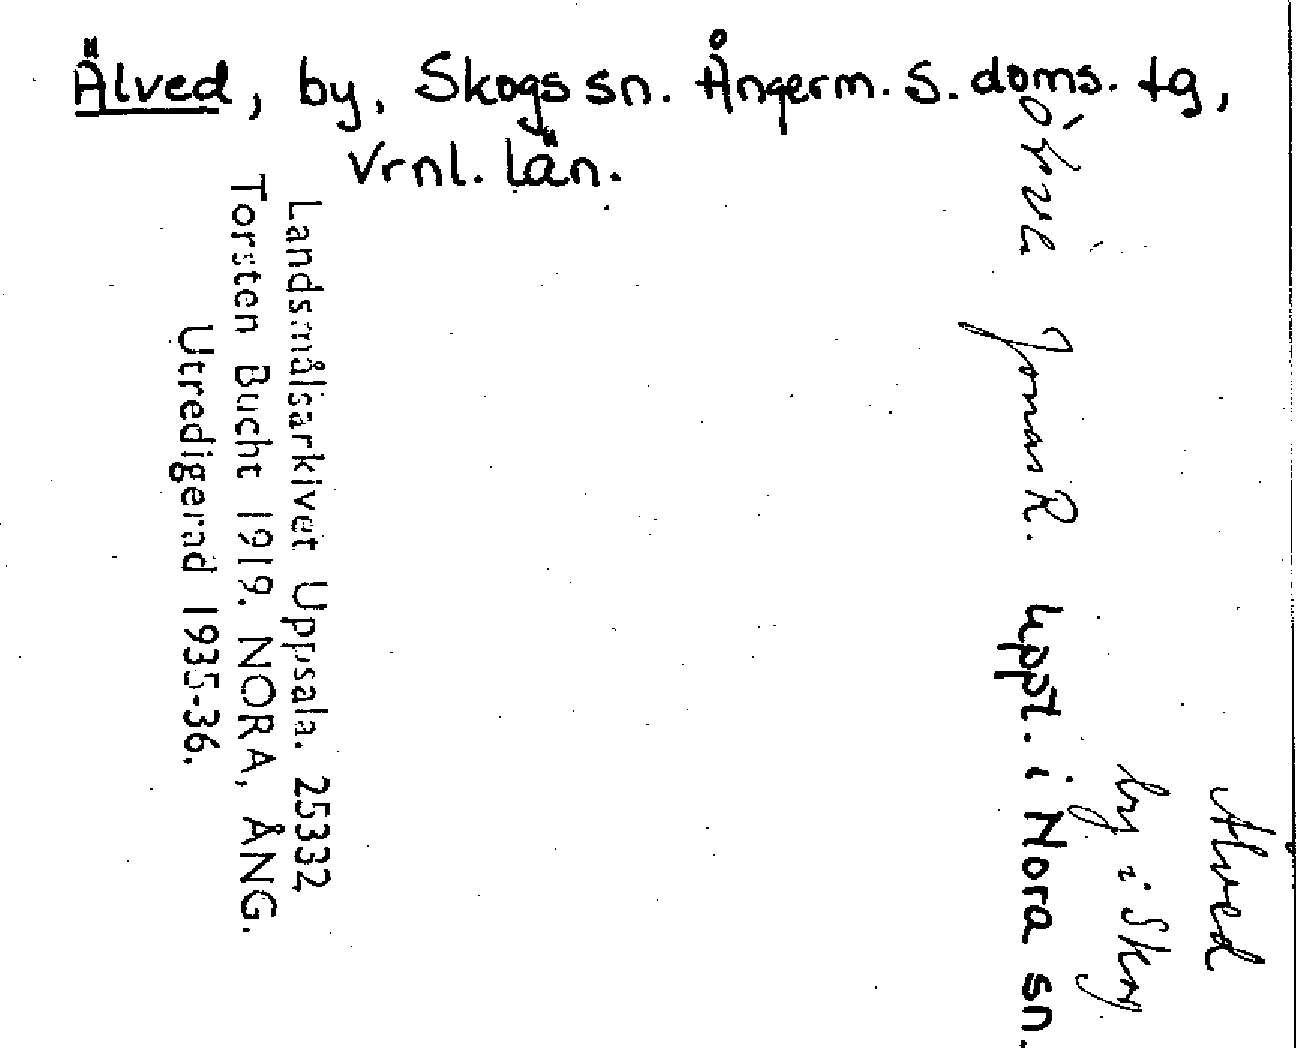 Älved, by, Skogs sn. Ångerm. S. doms. tg,
Vrnl. län.
Ålved
by i Skog
Jonas R. uppt. i Nora sn.
Landsmålsarkivet Uppsala. 25332
Torsten Bucht 1919. NORA, ÅNG.
Utredigerad 1935-36.